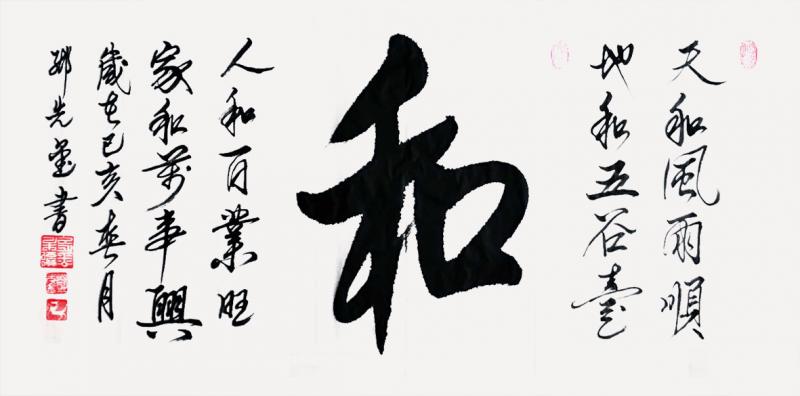 天和風雨順
地和五谷豐
和
人和百業旺
家和萬事興
歲在己亥春月
先書